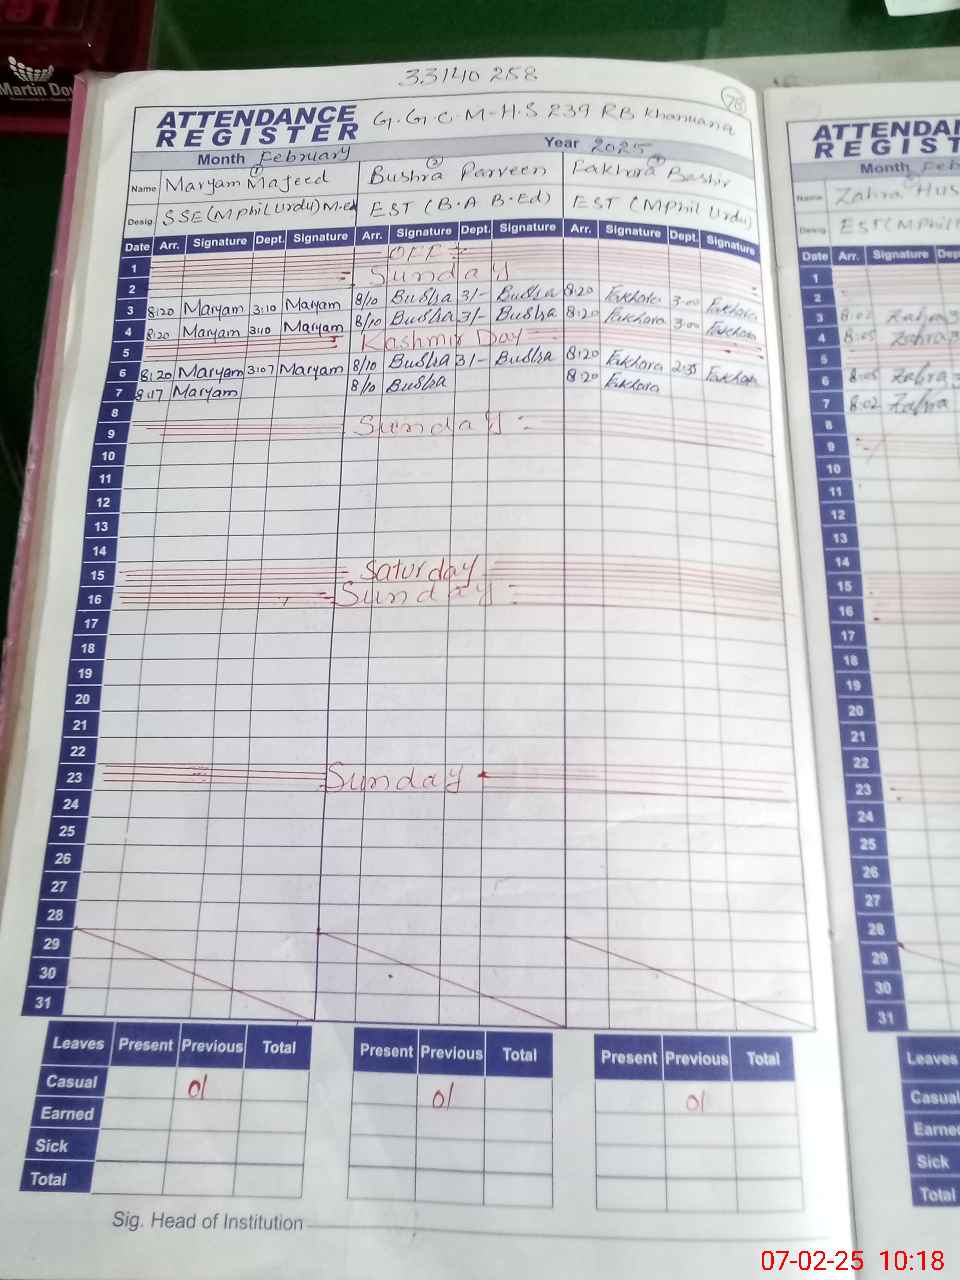 Martin Dow
33140 258
78
ATTENDANCE REGISTER G.G.C.M.H.S 239 RB Khanuana
Month February Year 2025
1 2 3
Name Maryam Majeed Bushra Parveen Fakhora Bashir
Desig. SSE (M Phil Urdu) M.ed EST (B.A B.Ed) EST (MPhil Urdu)
Date Arr. Signature Dept. Signature Arr. Signature Dept. Signature Arr. Signature Dept. Signature
1 OFF
2 Sunday
3 8:20 Maryam 3:10 Maryam 8/10 Bushra 3/- Bushra 8:20 Fakhora 3:00 Fakhora
4 8:20 Maryam 3:10 Maryam 8/10 Bushra 3/- Bushra 8:20 Fakhora 3:00 Fakhora
5 Kashmir Day
6 8:20 Maryam 3:07 Maryam 8/10 Bushra 3/- Bushra 8:20 Fakhora 2:35 Fakhora
7 8:17 Maryam 8/10 Bushra 8:20 Fakhora
8
9 Sunday
10
11
12
13
14
15 Saturday
16 Sunday
17
18
19
20
21
22
23 Sunday
24
25
26
27
28
29
30
31
Leaves Present Previous Total Present Previous Total Present Previous Total
Casual 01 01 01
Earned
Sick
Total
Sig. Head of Institution
ATTENDAN
REGIST
Month Feb
Name Zahra Hus
Desig. EST (MPhil
Date Arr. Signature Dep
1
2
3 8:02 Zahra 3
4 8:05 Zahra 3
5
6 8:05 Zahra 3
7 8:02 Zahra
8
9
10
11
12
13
14
15
16
17
18
19
20
21
22
23
24
25
26
27
28
29
30
31
Leaves
Casual
Earne
Sick
Total
07-02-25 10:18